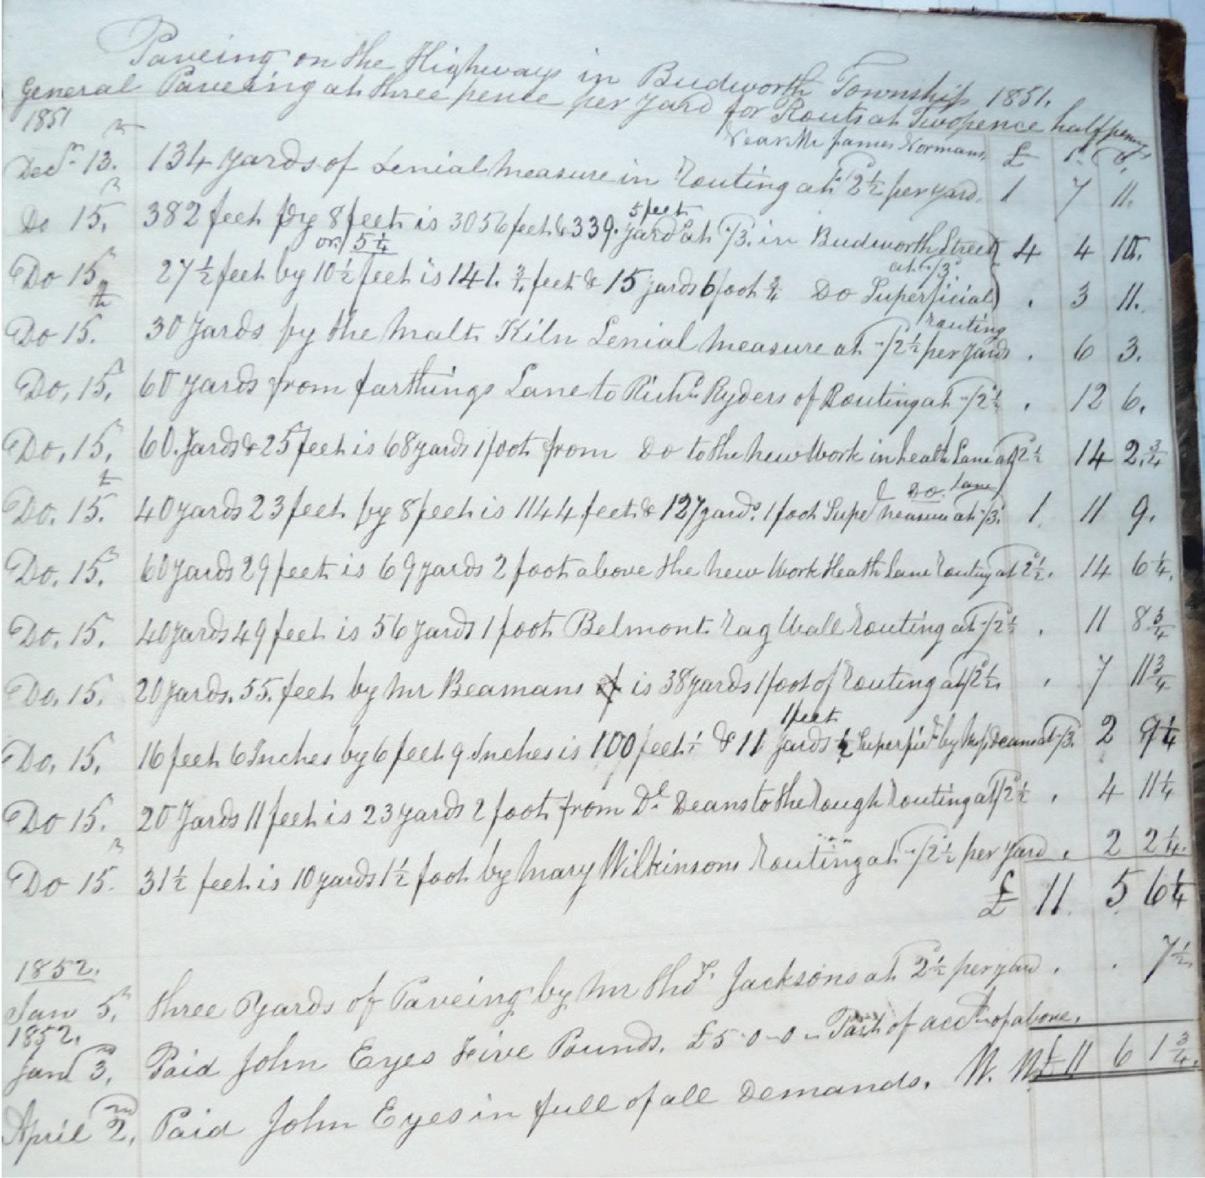 Paveing on the Highways in Budworth Township 1851.
General Paveing at three pence per yard for Routs at Twopence halfpenny
1851 near Mr James Normans £ s d
Decr 13. 134 yards of Lenial Measure in Routing at 2½ per yard. 1 7 11.
Do 15. 382 feet by 8 feet is 3056 feet & 339. yards 5 feet at -/3. in Budworth Street 4 4 10.
or 5¼ at -/3.
Do 15. 27½ feet by 10½ feet is 141. ¾ feet & 15 yards 6 foot ¾ Do Superficial . 3 11.
routing
Do 15. 30 Yards by the Malt Kiln Lenial Measure at -/2½ per yard . 6 3.
Do. 15. 60 yards from farthings Lane to Richd Ryders of Routing at -/2½ . 12 6.
Do. 15. 60. Yards & 25 feet is 68 yards 1 foot from Do to the new Work in heath Lane at 2½ 14 2.¾
Do lane
Do. 15. 40 yards 23 feet by 8 feet is 1144 feet & 127 yards. 1 foot Supel measure at -/3. 1. 11 9.
Do. 15. 60 yards 29 feet is 69 yards 2 foot above the new Work Heath Lane routing at 2½. 14 6¼.
Do. 15. 40 yards 49 feet is 56 yards 1 foot Belmont rag Wall routing at -/2½ . 11 8¾
Do. 15. 20 yards. 55. feet by Mr Beamans is 38 yards 1 foot of routing at 2½. . 7 11¾
1 feet
Do. 15. 16 feet 6 Inches by 6 feet 9 Inches is 100 feet & 11 yards ½ by at -/3. 2 9¼
Do 15. 20 Yards 11 feet is 23 yards 2 foot from Deans to the rough routing at 2½ . 4 11¼
Do 15. 31½ feet is 10 yards 1½ foot by Mary Wilkinsons routing at -/2½ per yard . 2 2¼.
£ 11. 5 6¼
1852.
Jan 5. three yards of Paveing by Mr Thos. Jacksons at 2½ per yard . . 7½
1852.
Jan 3. Paid John Eyes Five Pounds. £5-0-0 Part of acct of above.
£11 6 1¾.
April 2nd, Paid John Eyes in full of all Demands. W. W